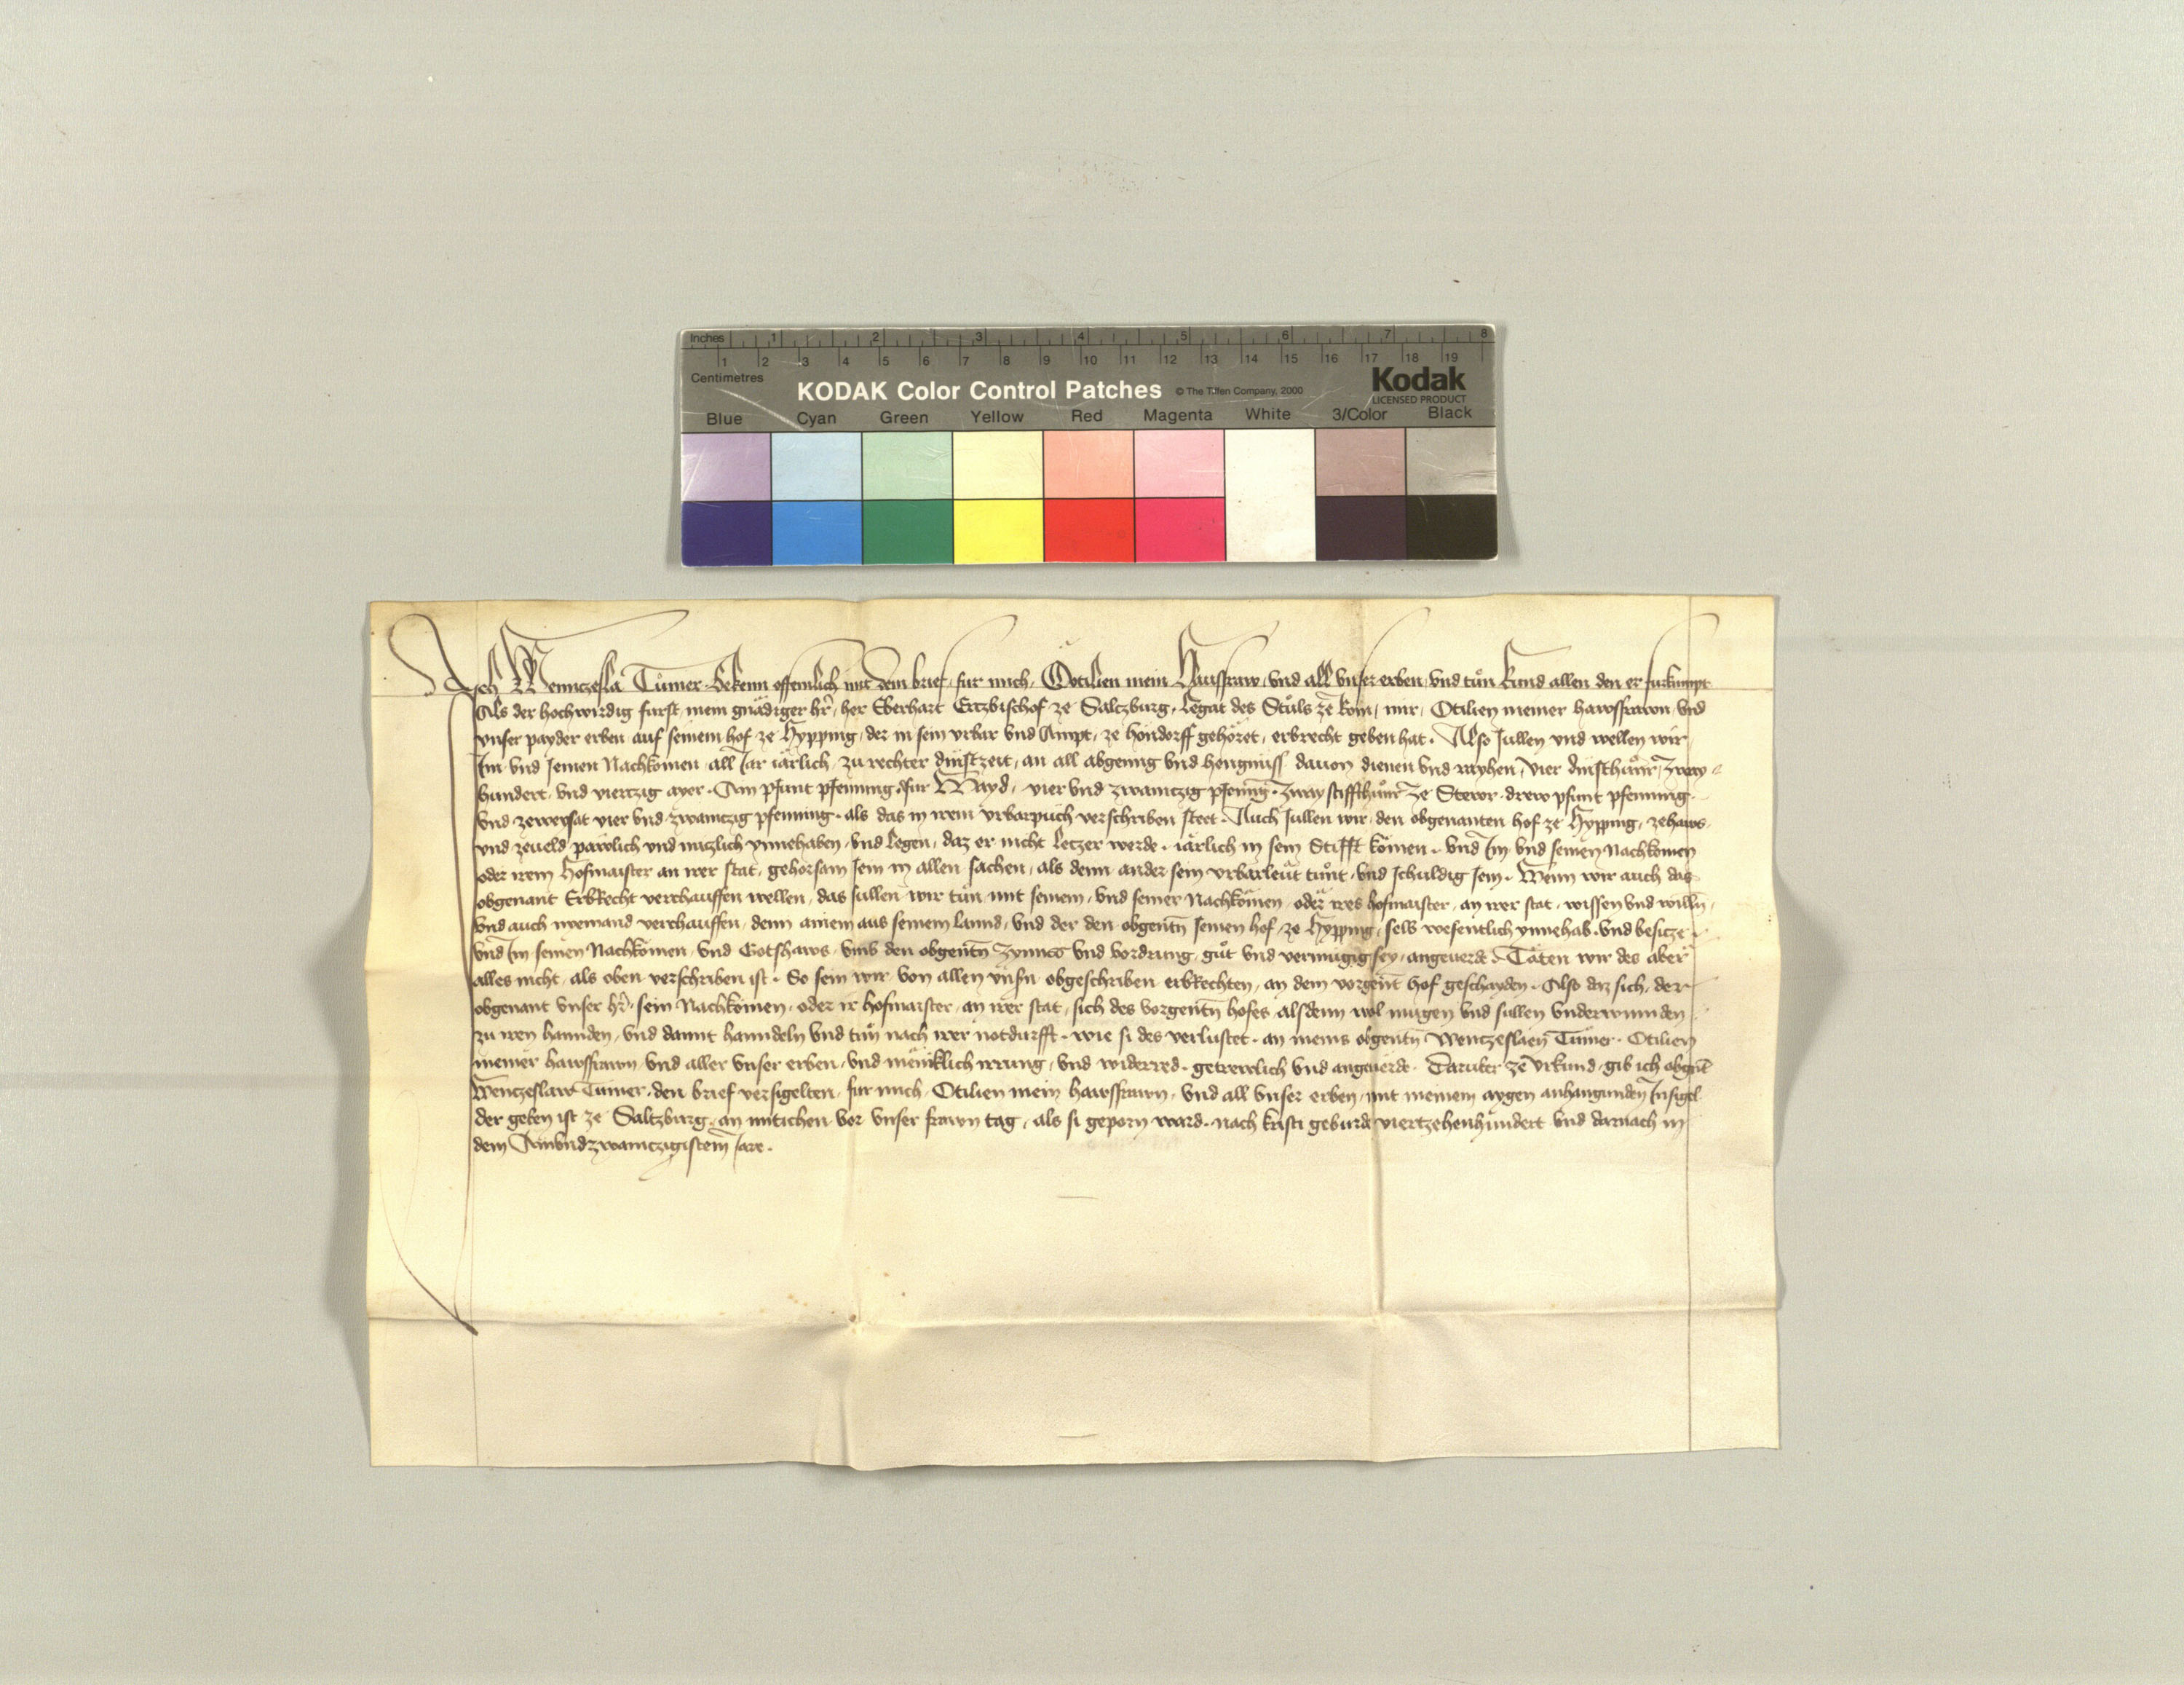 Inches 1 2 3 4 5 6 7 8
1 2 3 4 5 6 7 8 9 10 11 12 13 14 15 16 17 18 19
Centimetres
KODAK Color Control Patches © The Tiffen Company, 2000 Kodak
LICENSED PRODUCT
Blue Cyan Green Yellow Red Magenta White 3/Color Black
Ich Wenntzesla Túmer bekenn offennlich mit dem brief, fur mich, Otilien mein Hausfraw, vnd all vnser erben, vnd tůn kund allen den er furkumpt
Als der hochwirdig furst, mein gnädiger hr̄, her Eberhart Ertzbischof ze Saltzburg, legat des Stůls ze Rom, mir, Otilien meiner hawsfrawn, vnd
vnser payder erben auf seinem hof ze Hypping, der in sein vrbar vnd Ampt, ze höndorff gehöret, erbrecht geben hat. Also sullen vnd wellen wir
Im vnd seinen Nachkömen all Jar iärlich, zu rechter dinstzeit, an all abgenng vnd hengnuss dauon dienen vnd rayhen, vier dinsthůnr, zway
hundert, vnd viertzig ayer. Ain pfunt pfenning, fur Wayd, vier vnd zwaintzig pfening. zway stiffthůnr ze Stewr, drew pfunt pfenning
vnd zeweysat vier vnd zwaintzig pfenning. als das in irem vrbarpůch verschriben steet. Auch sullen wir, den obgenanten hof ze Hypping, zehaws
vnd zeueld päwlich vnd nutzlich ynnehaben, vnd legen, daz er nicht letzer werde. iärlich in sein Stifft kömen. vnd Im vnd seinen Nachkömen
oder irem Hofmaister an irer stat, gehorsam sein in allen sachen, als denn ander sein vrbarleut tůnt, vnd schuldig sein. Wenn wir auch das
obgenant Erbrecht verchauffen wellen, das sullen wir tůn mit seinem, vnd seiner Nachkömen, oder ires hofmaister, an irer stat, wissen vnd willn̄,
vnd auch niemand verchauffen, denn ainem aus seinem lannd, vnd der den obgentn̄ seinen hof ze Hypping, selb wesentlich ynnehab, vnd besitze.
vnd Im seinen Nachkömen, vnd Gotshaws, vmb den obgentn̄ zynns vnd vordrung, gůt vnd vermugig sey, angeuerde. Täten wir des aber
alles nicht, als oben verschriben ist. So sein wir von allen vnsn̄ obgeschriben erbrechten, an dem vorgent̄ hof geschayden. Also daz sich, der
obgenant vnser hr̄, sein Nachkömen, oder ir hofmaister, an irer stat, sich des vorgentn̄ hofes, alsdenn wol mugen vnd sullen vnderwinnden
zu iren hannden, vnd damit hanndeln vnd tůn nach irer notdurfft. wie si des verlustet. an meins obgentn̄ Wentzeslaen Túmer. Otilien
meiner hawsfrawn, vnd aller vnser erben, vnd mëniklich irrung, vnd widerred. getrewlich vnd angeuerde. Daruber ze vrkund, gib ich obgent̄
Wentzeslaw Túmer, den brief versigelten, fur mich, Otilien mein hawsfrawn, vnd all vnser erben, mit meinem aygen anhangunden Insigel
der geben ist ze Saltzburg, an mitichen vor vnser frawn tag, als si geporn ward. nach kristi geburde viertzehenhundert vnd darnach in
dem Ainvndzwaintzigistem Jare.